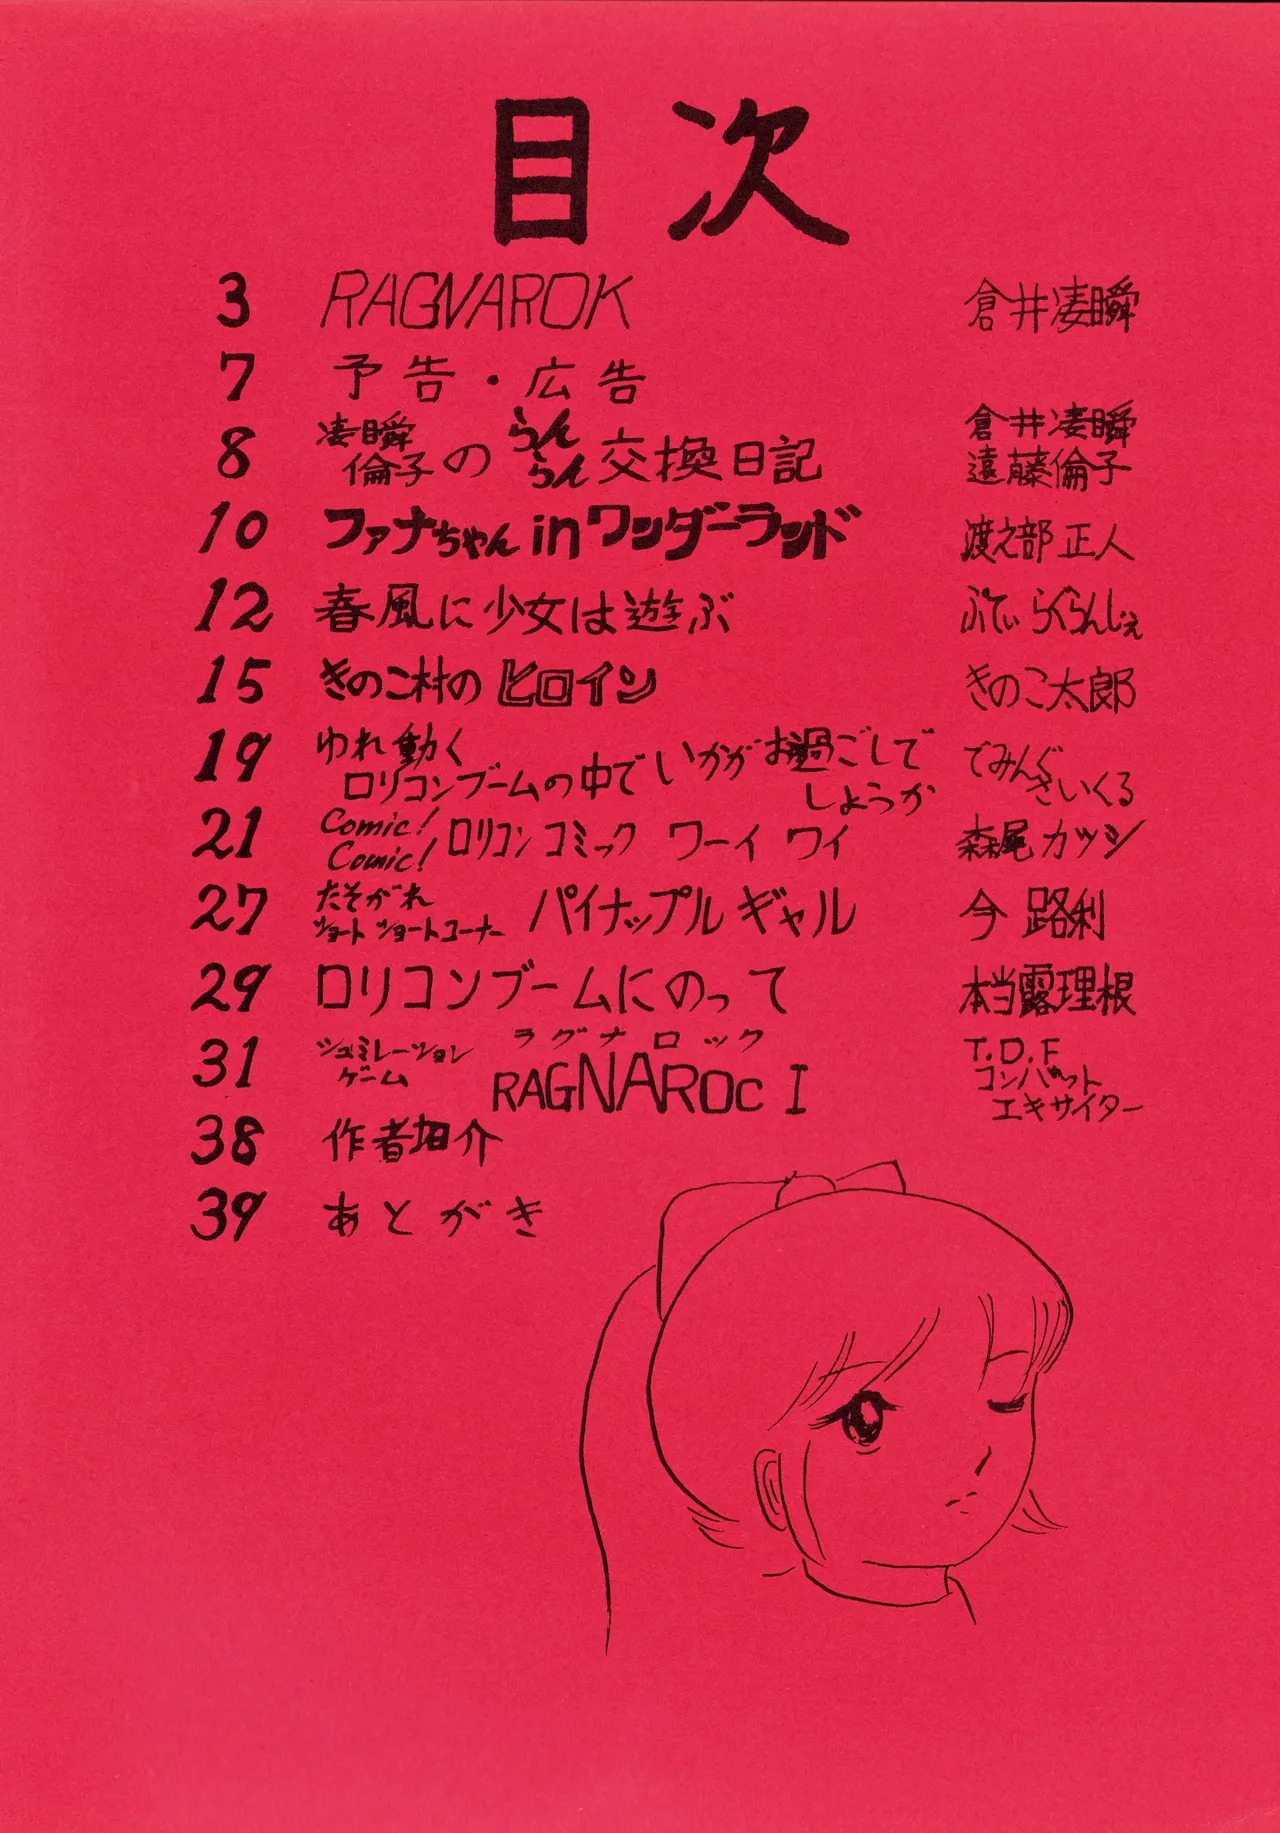 目次
3 RAGNAROK 倉井凄瞬
7 予告・広告
8 凄瞬 倫子の らんらん 交換日記 倉井凄瞬 遠藤倫子
10 ファナちゃん in ワンダーランド 渡之部 正人
12 春風に少女は遊ぶ ぷてぃ らぐらんじぇ
15 きのこ村の ヒロイン きのこ太郎
19 ゆれ動く ロリコンブームの中で いかがお過ごしで しょうか でみんぐ さいくる
21 Comic! Comic! ロリコン コミック ワーイ ワイ 森尾 カツシ
27 たそがれ ショート ショートコーナー パイナップル ギャル 今 路利
29 ロリコンブームにのって 本当露理根
31 シュミレーション ゲーム ラグナロック RAGNAROC I T.D.F コンバット エキサイター
38 作者紹介
39 あとがき